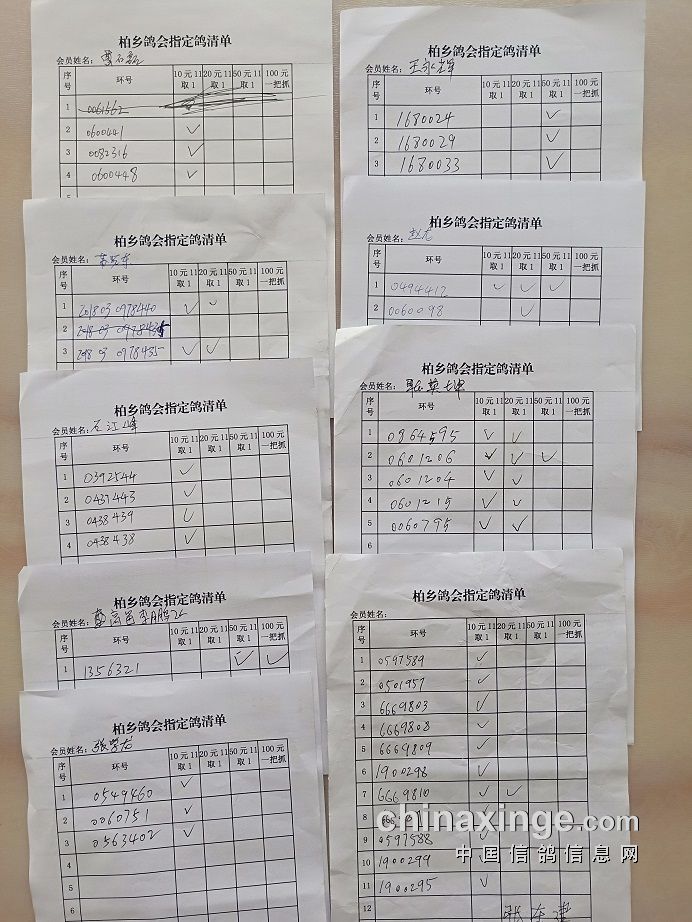 柏乡鸽会指定鸽清单
会员姓名：
序号 环号 10元11取1 20元11取1 50元11取1 100元一把抓
1 0061562
2 0600441 ✓
3 0082316 ✓
4 0600448 ✓
5
柏乡鸽会指定鸽清单
会员姓名：
序号 环号 10元11取1 20元11取1 50元11取1 100元一把抓
1 2018 03 0978440 ✓ ✓
2
3 2018 03 0978435 ✓ ✓
柏乡鸽会指定鸽清单
会员姓名：石江峰
序号 环号 10元11取1 20元11取1 50元11取1 100元一把抓
1 0392544 ✓
2 0437443 ✓
3 0438439 ✓
4 0438438 ✓
柏乡鸽会指定鸽清单
会员姓名：
序号 环号 10元11取1 20元11取1 50元11取1 100元一把抓
1 1356321 ✓ ✓
柏乡鸽会指定鸽清单
会员姓名：
序号 环号 10元11取1 20元11取1 50元11取1 100元一把抓
1 0549460 ✓
2 0060751 ✓
3 0563402 ✓
4
5
6
柏乡鸽会指定鸽清单
会员姓名：王永辉
序号 环号 10元11取1 20元11取1 50元11取1 100元一把抓
1 1680024 ✓
2 1680029 ✓
3 1680033 ✓
柏乡鸽会指定鸽清单
会员姓名：赵龙
序号 环号 10元11取1 20元11取1 50元11取1 100元一把抓
1 0494412 ✓ ✓ ✓
2 0060098 ✓
柏乡鸽会指定鸽清单
会员姓名：
序号 环号 10元11取1 20元11取1 50元11取1 100元一把抓
1 0964595 ✓ ✓
2 0601206 ✓ ✓ ✓
3 0601204 ✓ ✓
4 0601215 ✓ ✓
5 0060795 ✓ ✓
6
柏乡鸽会指定鸽清单
会员姓名：
序号 环号 10元11取1 20元11取1 50元11取1 100元一把抓
1 0597589 ✓
2 0501957 ✓
3 6669803 ✓
4 6669808 ✓
5 6669809 ✓
6 1900298 ✓
7 6669810 ✓ ✓
8
9 0597588 ✓
10 1900299 ✓
11 1900295 ✓
12
chinaxinge.com
中国信鸽信息网